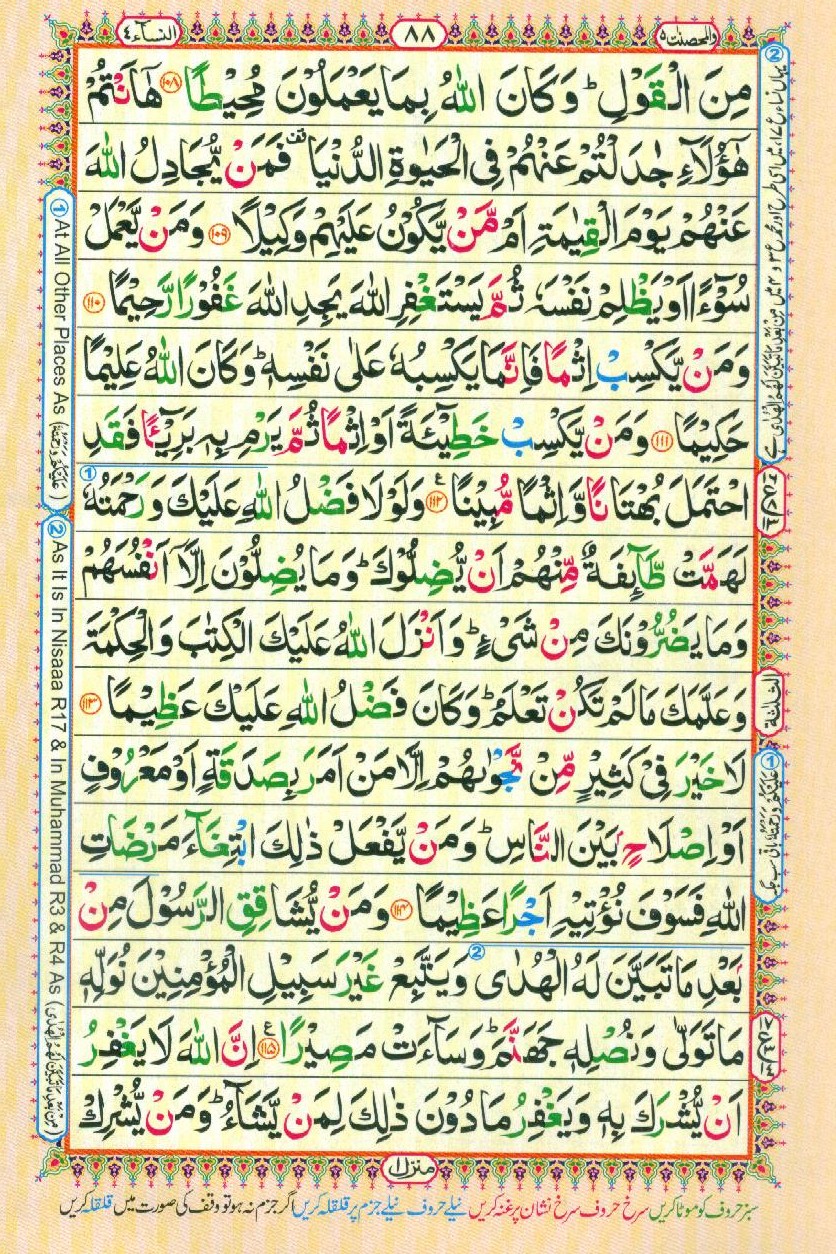 والمحصنت ٥
٨٨
النسآء ٤
مِنَ الْقَوْلِ ؕ وَكَانَ اللّٰهُ بِمَا يَعْمَلُوْنَ مُحِيْطًا ﴿۱۰۸﴾ هٰۤاَنْتُمْ
هٰۤؤُلَآءِ جٰدَلْتُمْ عَنْهُمْ فِى الْحَيٰوةِ الدُّنْيَا ۟ فَمَنْ يُّجَادِلُ اللّٰهَ
عَنْهُمْ يَوْمَ الْقِيٰمَةِ اَمْ مَّنْ يَّكُوْنُ عَلَيْهِمْ وَكِيْلًا ﴿۱۰۹﴾ وَمَنْ يَّعْمَلْ
سُوْٓءًا اَوْ يَظْلِمْ نَفْسَهٗ ثُمَّ يَسْتَغْفِرِ اللّٰهَ يَجِدِ اللّٰهَ غَفُوْرًا رَّحِيْمًا ﴿۱۱۰﴾
وَمَنْ يَّكْسِبْ اِثْمًا فَاِنَّمَا يَكْسِبُهٗ عَلٰى نَفْسِهٖ ؕ وَكَانَ اللّٰهُ عَلِيْمًا
حَكِيْمًا ﴿۱۱۱﴾ وَمَنْ يَّكْسِبْ خَطِيْٓئَةً اَوْ اِثْمًا ثُمَّ يَرْمِ بِهٖ بَرِيْٓـًٔا فَقَدِ
احْتَمَلَ بُهْتَانًا وَّاِثْمًا مُّبِيْنًا ﴿۱۱۲﴾ ع وَلَوْلَا فَضْلُ اللّٰهِ عَلَيْكَ وَرَحْمَتُهٗ ①
لَهَمَّتْ طَّآئِفَةٌ مِّنْهُمْ اَنْ يُّضِلُّوْكَ ؕ وَمَا يُضِلُّوْنَ اِلَّاۤ اَنْفُسَهُمْ
وَمَا يَضُرُّوْنَكَ مِنْ شَىْءٍ ؕ وَاَنْزَلَ اللّٰهُ عَلَيْكَ الْكِتٰبَ وَالْحِكْمَةَ
وَعَلَّمَكَ مَا لَمْ تَكُنْ تَعْلَمُ ؕ وَكَانَ فَضْلُ اللّٰهِ عَلَيْكَ عَظِيْمًا ﴿۱۱۳﴾
لَا خَيْرَ فِىْ كَثِيْرٍ مِّنْ نَّجْوٰٮهُمْ اِلَّا مَنْ اَمَرَ بِصَدَقَةٍ اَوْ مَعْرُوْفٍ
اَوْ اِصْلَاحٍۭ بَيْنَ النَّاسِ ؕ وَمَنْ يَّفْعَلْ ذٰلِكَ ابْتِغَآءَ مَرْضَاتِ
اللّٰهِ فَسَوْفَ نُؤْتِيْهِ اَجْرًا عَظِيْمًا ﴿۱۱۴﴾ وَمَنْ يُّشَاقِقِ الرَّسُوْلَ مِنْۢ
بَعْدِ مَا تَبَيَّنَ لَهُ الْهُدٰى ② وَيَتَّبِعْ غَيْرَ سَبِيْلِ الْمُؤْمِنِيْنَ نُوَلِّهٖ
مَا تَوَلّٰى وَنُصْلِهٖ جَهَنَّمَ ؕ وَسَآءَتْ مَصِيْرًا ﴿۱۱۵﴾ ع اِنَّ اللّٰهَ لَا يَغْفِرُ
اَنْ يُّشْرَكَ بِهٖ وَيَغْفِرُ مَا دُوْنَ ذٰلِكَ لِمَنْ يَّشَآءُ ؕ وَمَنْ يُّشْرِكْ
منزل ١
سبز حروف کو موٹا کریں سرخ حروف سرخ نشان پر غنہ کریں نیلے حروف نیلے جزم پر قلقلہ کریں اگر جزم نہ ہو تو وقف کی صورت میں قلقلہ کریں
① At All Other Places As (عَلَيْكُمْ وَرَحْمَتُهٗ)
② As It Is In Nisaaa R17 & In Muhammad R3 & R4 As (مِنْۢ بَعْدِ مَا تَبَيَّنَ لَهُمُ الْهُدَى)
الثلثة